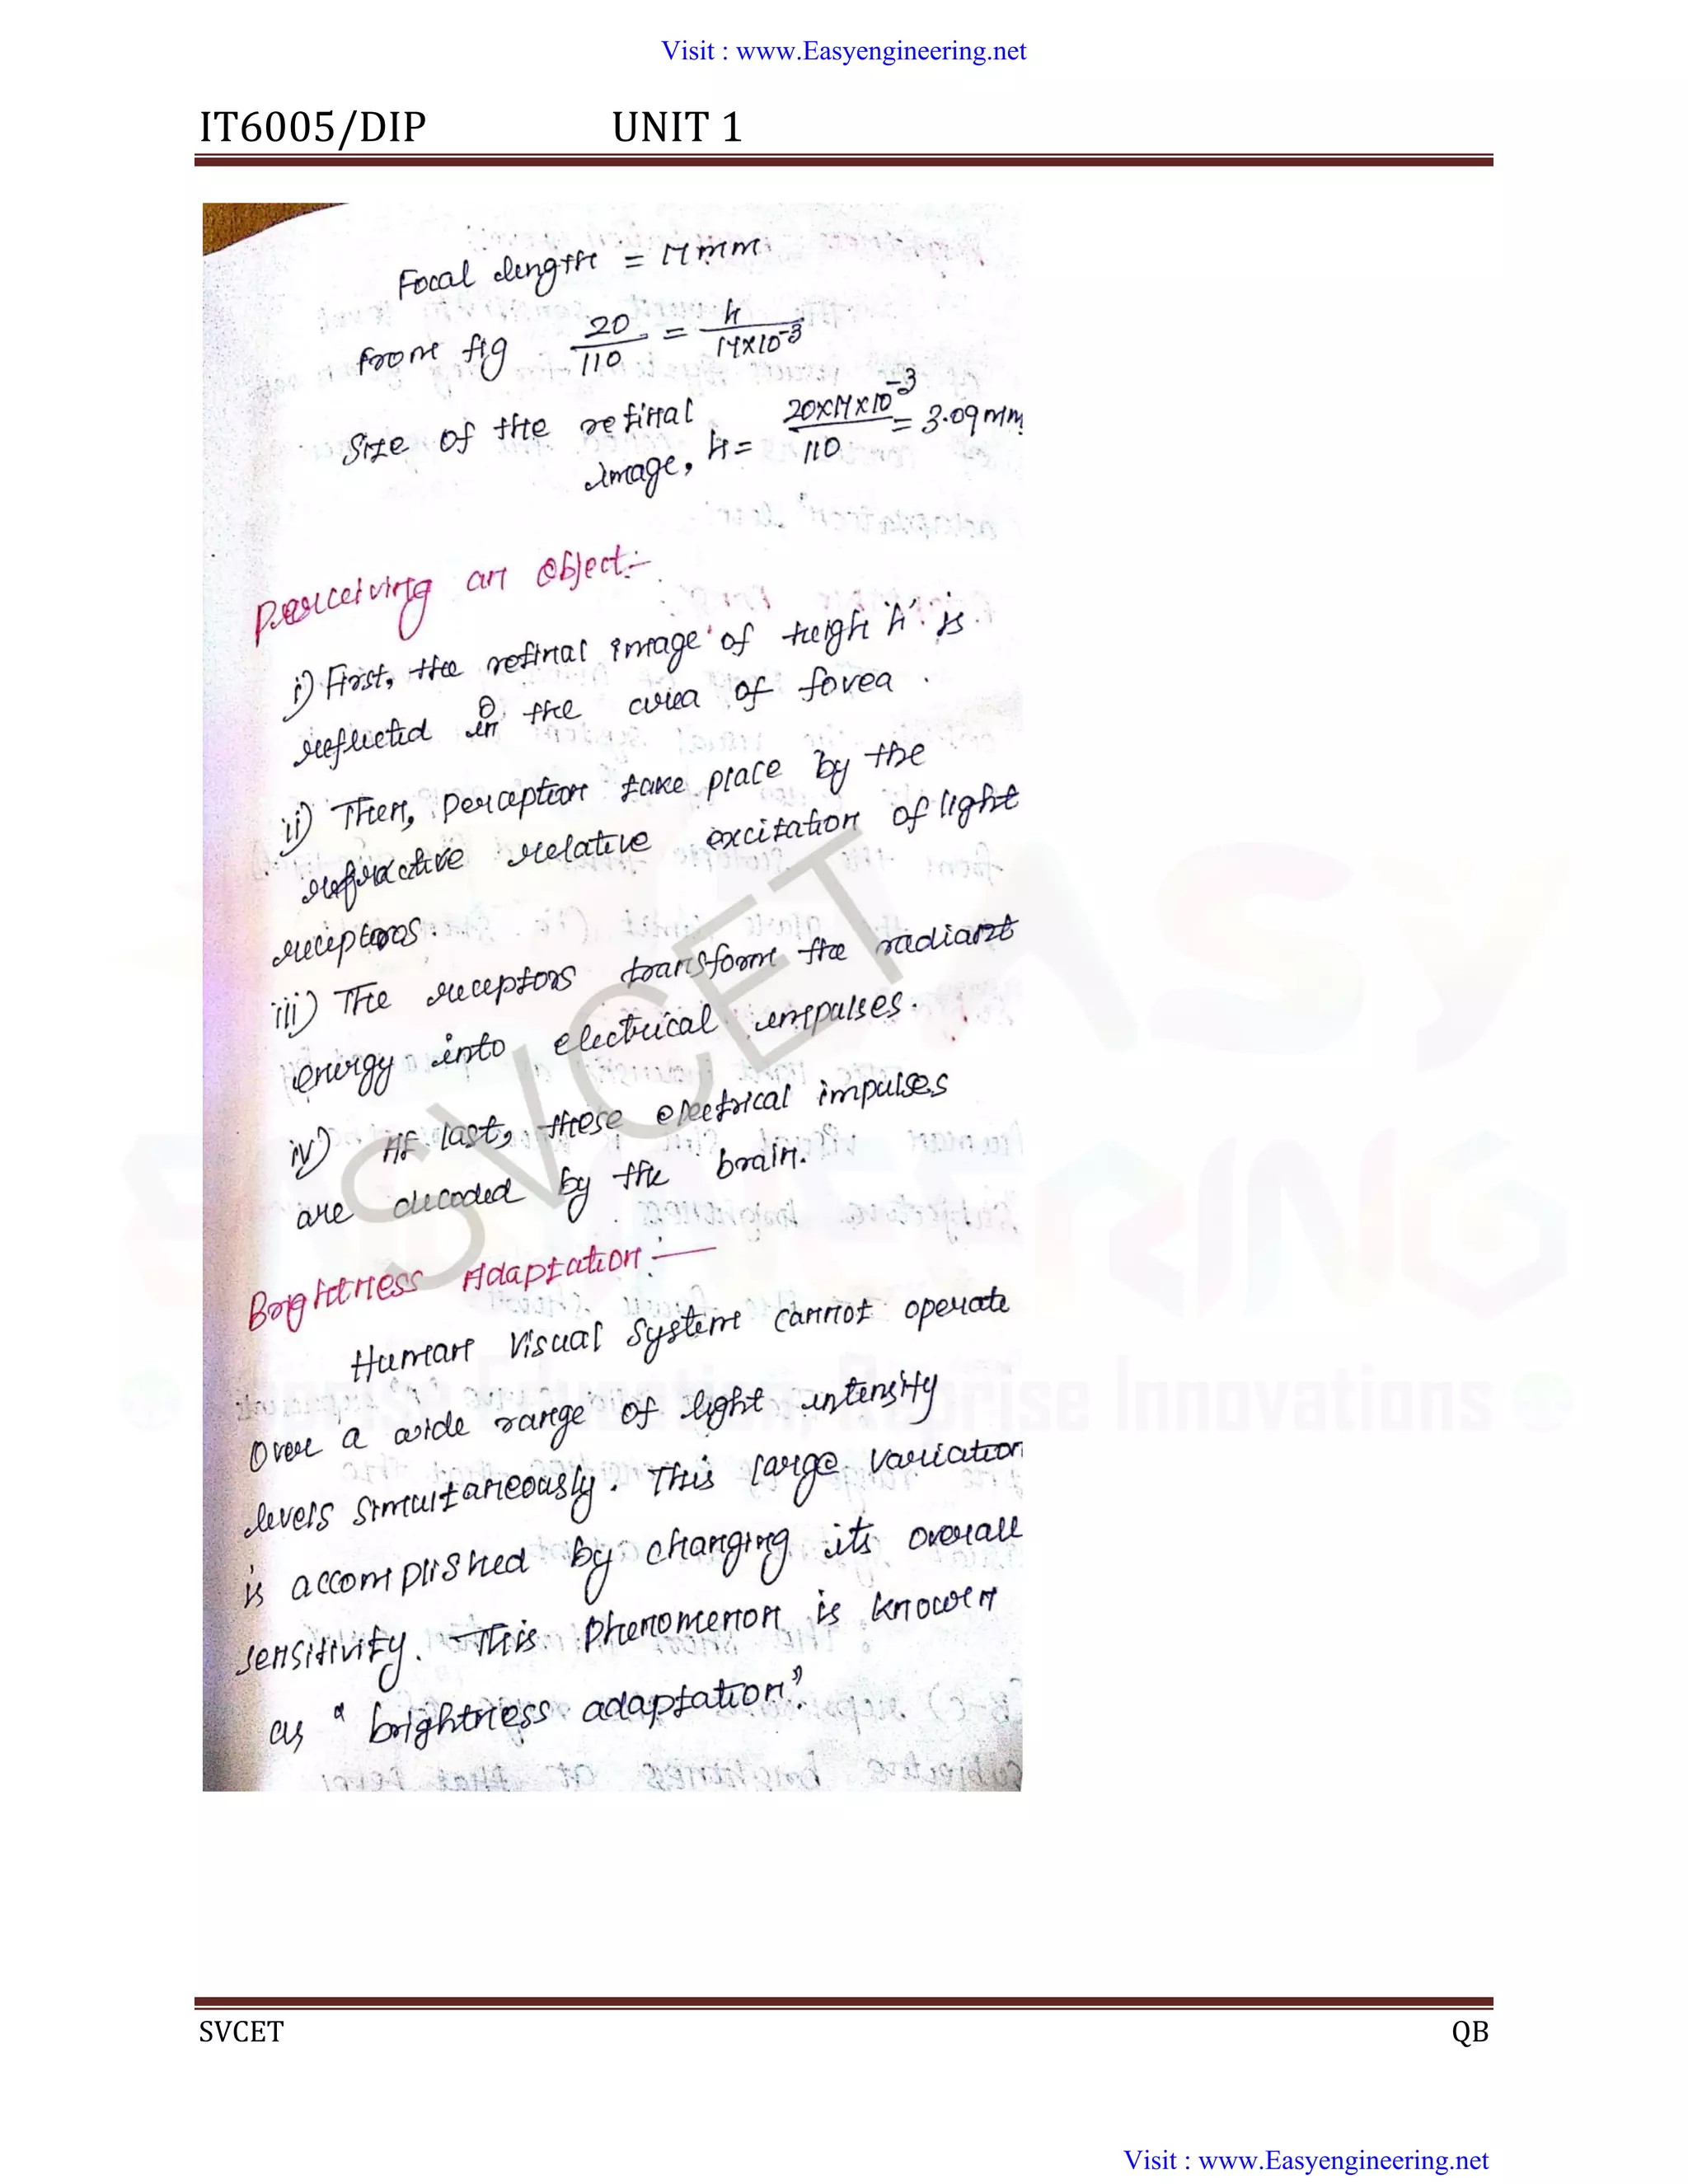 Visit : www.Easyengineering.net
IT6005/DIP UNIT 1
Focal length = 17 mm.
From fig 20/110 = h/17x10^-3
Size of the retinal 20x17x10^-3/110 = 3.09 mm
image, h =
Perceiving an object:-
i) First, the retinal image of heigh 'h' is
reflected in the area of fovea.
ii) Then, Perception take place by the
refractive relative excitation of light
receptors.
iii) The receptors transform the radiant
energy into electrical impulses.
iv) At last, these electrical impulses
are decoded by the brain.
Brightness Adaptation:—
Human Visual System cannot operate
over a wide range of light intensity
levels simultaneously. This large variation
is accomplished by changing its overall
sensitivity. This phenomenon is known
as "brightness adaptation".
SVCET
EASY
ENGINEERING
Reprise Education, Reprise Innovations
SVCET QB
Visit : www.Easyengineering.net